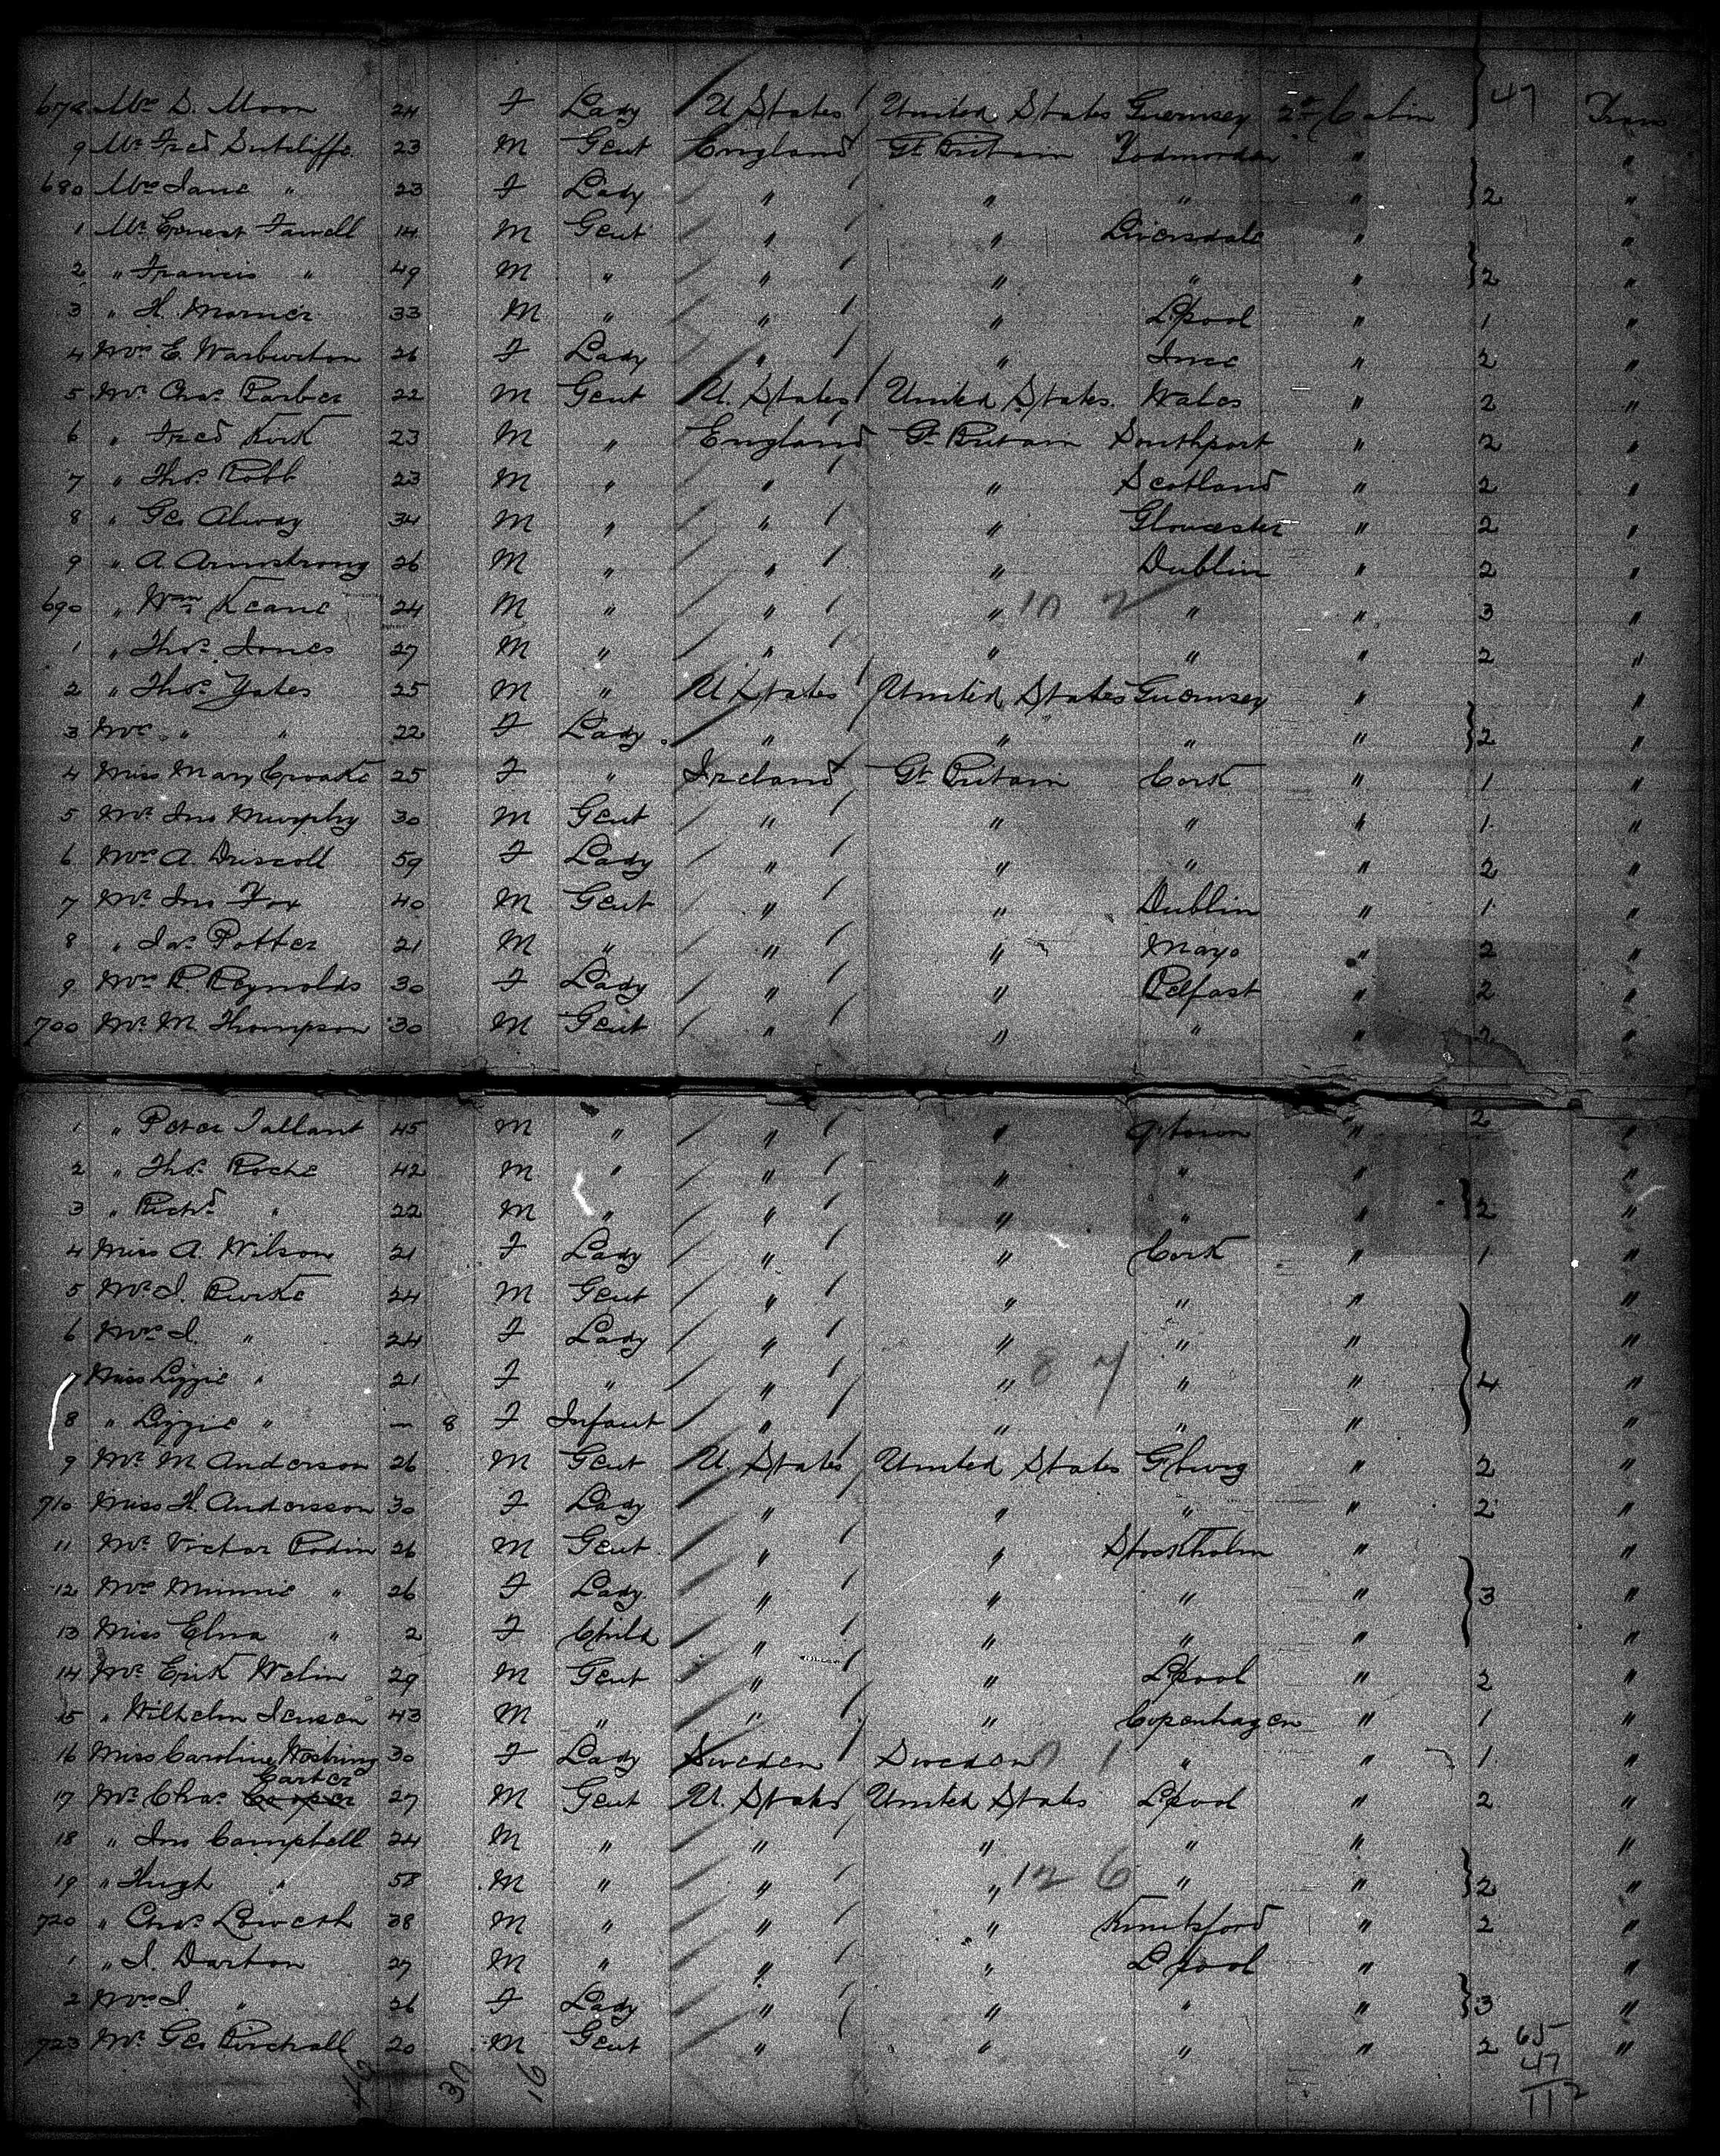 678 Mrs S. Moon 24 F Lady U States United States Guernsey 2nd Cabin 47 Tran
9 Mr Fred Sutcliffe 23 M Gent England Gt Britain Todmorden " "
680 Mrs Jane " 23 F Lady " " " " 2 "
1 Mr Ernest Farrell 14 M Gent " " Liversdale " "
2 " Francis " 49 M " " " " " 2 "
3 " H. Marrier 33 M " " " L'pool " 1 "
4 Mrs E. Warburton 26 F Lady " " Ince " 2 "
5 Mr Chas. Barber 22 M Gent U. States United States. Wales " 2 "
6 " Fred Kirk 23 M " England Gt Britain Southport " 2 "
7 " Thos. Robb 23 M " " " Scotland " 2 "
8 " Geo Alway 34 M " " " Gloucester " 2 "
9 " A. Armstrong 26 M " " " Dublin " 2 "
690 " Wm Keane 24 M " " " 10 7 " " 3 "
1 " Thos. Jones 27 M " " " " " 2 "
2 " Thos. Yates 25 M " U States United States Guernsey " "
3 Mrs " " 22 F Lady " " " " 2 "
4 Miss Mary Croake 25 F " Ireland Gt Britain Cork " 1 "
5 Mr Jno Murphy 30 M Gent " " " " 1 "
6 Mrs A. Driscoll 59 F Lady " " " " 2 "
7 Mr Jno Fox 40 M Gent " " Dublin " 1 "
8 " Jas. Potter 21 M " " " Mayo " 2 "
9 Mrs R. Reynolds 30 F Lady " " Belfast " 2 "
700 Mr M. Thompson 30 M Gent " " " " 2 "
1 " Peter Tallant 45 M " " " Q'town " 2 "
2 " Thos. Roche 42 M " " " " " "
3 " Richd " 22 M " " " " " 2 "
4 Miss A. Wilson 21 F Lady " " Cork " 1 "
5 Mr J. Burke 24 M Gent " " " " "
6 Mrs J. " 24 F Lady " " " " "
7 Miss Lizzie " 21 F " " " 8 7 " " 4 "
8 " Lizzie " — 8 F Infant " " " " "
9 Mr M Anderson 26 M Gent U. States United States G'burg " 2 "
710 Miss H. Andersson 30 F Lady " " " " 2 "
11 Mr Victor Bodin 26 M Gent " " Stockholm " "
12 Mrs Minnie " 26 F Lady " " " " 3 "
13 Miss Elna " 2 F Child " " " " "
14 Mr Erik Welin 29 M Gent " " L'pool " 2 "
15 " Wilhelm Jensen 43 M " " " Copenhagen " 1 "
16 Miss Caroline 30 F Lady Sweden Sweden 1 " " 1 "
Carter
17 Mr Chas. Cooper 27 M Gent U. States United States L'pool " 2 "
18 " Jno Campbell 24 M " " " " " "
19 " Hugh " 58 M " " " 12 6 " " 2 "
720 " Chas. Loweth 38 M " " " Knutsford " 2 "
1 " J. Darton 27 M " " " L'pool " "
2 Mrs J. " 26 F Lady " " " " 3 "
723 Mr Geo Birchall 20 M Gent " " " " 2 "
65
47
112
30 16